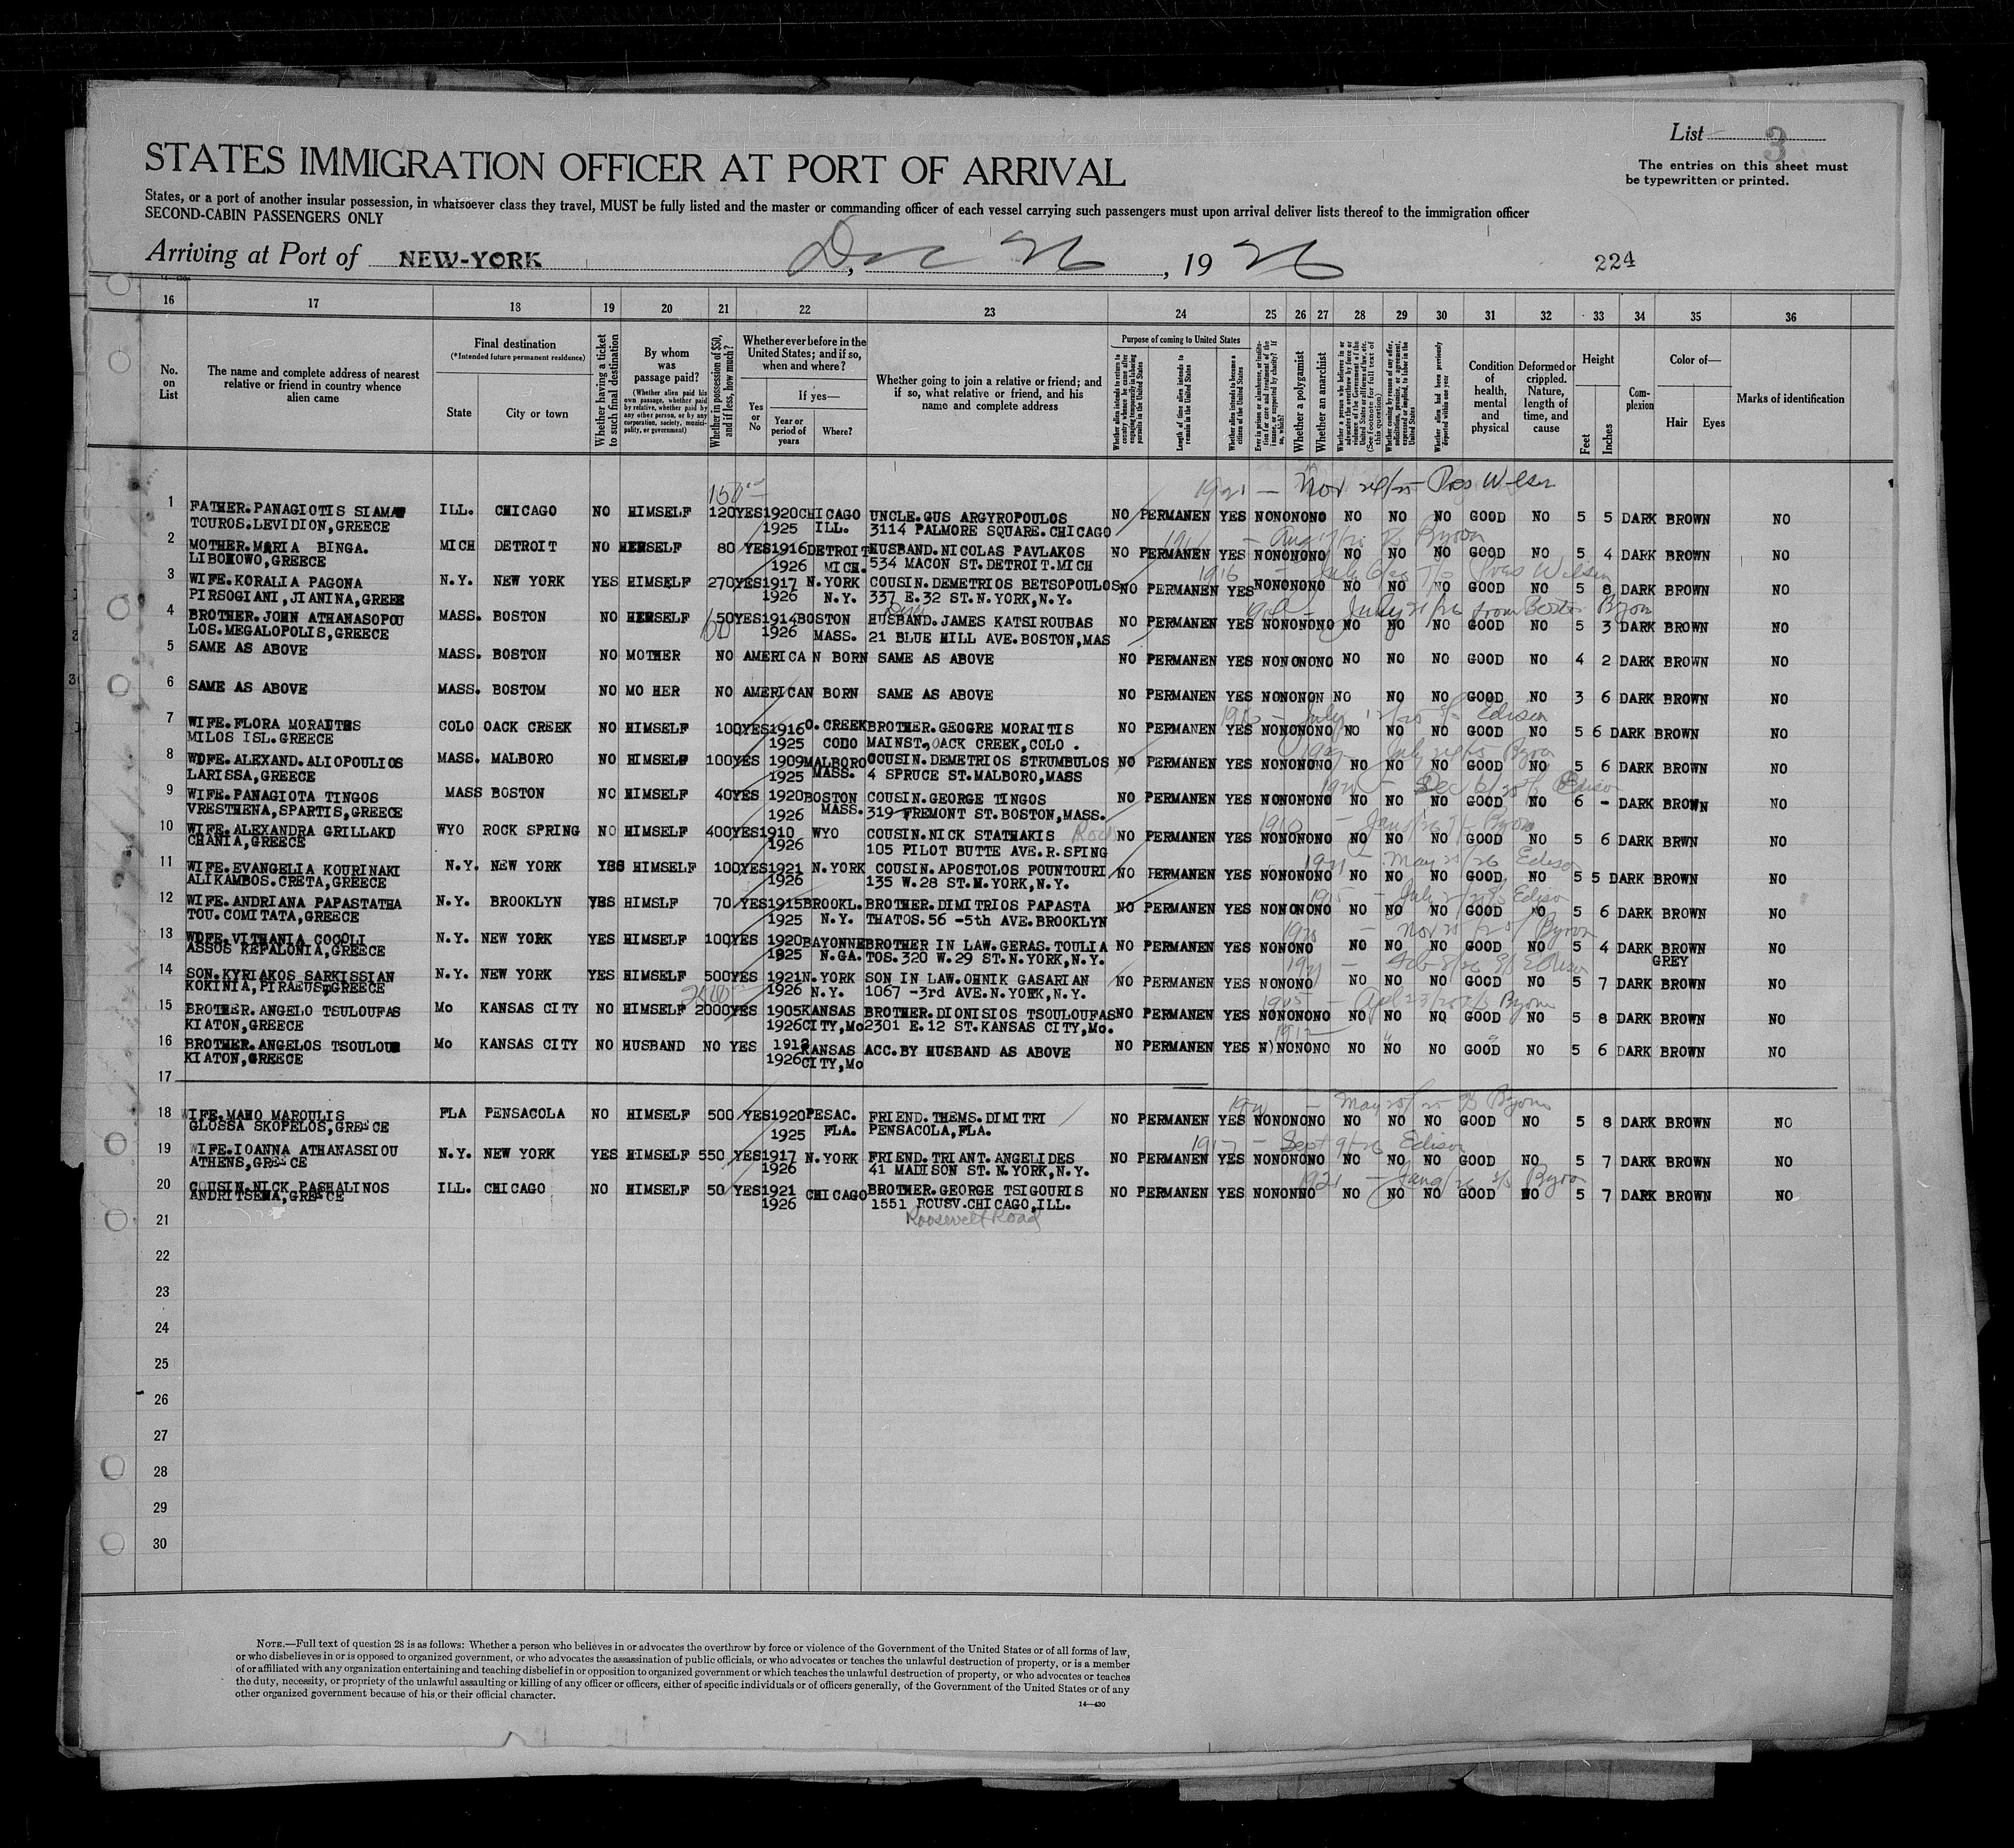 List 3
The entries on this sheet must
be typewritten or printed.
STATES IMMIGRATION OFFICER AT PORT OF ARRIVAL
States, or a port of another insular possession, in whatsoever class they travel, MUST be fully listed and the master or commanding officer of each vessel carrying such passengers must upon arrival deliver lists thereof to the immigration officer
SECOND-CABIN PASSENGERS ONLY
Arriving at Port of NEW-YORK Dec 26, 1926
224
16 17 18 19 20 21 22 23 24 25 26 27 28 29 30 31 32 33 34 35 36
No. on List
The name and complete address of nearest relative or friend in country whence alien came
Final destination
(*Intended future permanent residence)
State City or town
Whether having a ticket to such final destination
By whom was passage paid?
(Whether alien paid his own passage, whether paid by relative, whether paid by any other person, or by any corporation, society, municipality, or government)
Whether in possession of $50, and if less, how much?
Whether ever before in the United States; and if so, when and where?
Yes or No
If yes—
Year or period of years
Where?
Whether going to join a relative or friend; and if so, what relative or friend, and his name and complete address
Purpose of coming to United States
Whether alien intends to return to country whence he came after engaging temporarily in laboring pursuits in the United States
Length of time alien intends to remain in the United States
Whether alien intends to become a citizen of the United States
Whether a polygamist
Whether an anarchist
Condition of health, mental and physical
Deformed or crippled. Nature, length of time, and cause
Height
Feet Inches
Complexion
Color of—
Hair Eyes
Marks of identification
1921 — Nov 24/25 Pres Wilson
150
1 FATHER.PANAGIOTIS SIAMA ILL. CHICAGO NO HIMSELF 120 YES 1920 CHICAGO UNCLE.GUS ARGYROPOULOS NO PERMANEN YES NO NO NO NO NO NO NO GOOD NO 5 5 DARK BROWN NO
TOUROS.LEVIDION,GREECE 1925 ILL. 3114 PALMORE SQUARE.CHICAGO
2 MOTHER.MARIA BINGA. MICH DETROIT NO HERSELF 80 YES 1916 DETROIT HUSBAND.NICOLAS PAVLAKOS NO PERMANEN YES NO NO NO NO NO NO NO GOOD NO 5 4 DARK BROWN NO
LIBOHOWO,GREECE 1926 MICH. 534 MACON ST.DETROIT.MICH
1916 - July 6/26 Pres Wilson
3 WIFE.KORALIA PAGONA N.Y. NEW YORK YES HIMSELF 270 YES 1917 N.YORK COUSIN.DEMETRIOS BETSOPOULOS NO PERMANEN YES NO NO NO NO NO NO NO GOOD NO 5 8 DARK BROWN NO
PIRSOGIANI,JIANINA,GREEE 1926 N.Y. 337 E.32 ST.N.YORK,N.Y.
July 21/26 from Boston Byron
4 BROTHER.JOHN ATHANASOPOU MASS. BOSTON NO HERSELF 50 YES 1914 BOSTON HUSBAND.JAMES KATSIROUBAS NO PERMANEN YES NO NO NO NO NO NO NO GOOD NO 5 3 DARK BROWN NO
LOS.MEGALOPOLIS,GREECE 100 1926 MASS. 21 BLUE HILL AVE.BOSTON,MAS
5 SAME AS ABOVE MASS. BOSTON NO MOTHER NO AMERICAN BORN SAME AS ABOVE NO PERMANEN YES NO NO NO NO NO NO NO GOOD NO 4 2 DARK BROWN NO
6 SAME AS ABOVE MASS. BOSTOM NO MO HER NO AMERICAN BORN SAME AS ABOVE NO PERMANEN YES NO NO NO N NO NO NO GOOD NO 3 6 DARK BROWN NO
7 WIFE.FLORA MORAITES COLO OACK CREEK NO HIMSELF 100 YES 1916 O.CREEK BROTHER.GEOGRE MORAITIS NO PERMANEN YES NO NO NO NO NO NO NO GOOD NO 5 6 DARK BROWN NO
MILOS ISL.GREECE 1925 CODO MAINST.,OACK CREEK,COLO .
8 WIFE.ALEXAND.ALIOPOULIOS MASS. MALBORO NO HIMSELF 100 YES 1909 MALBORO COUSIN.DEMETRIOS STRUMBULOS NO PERMANEN YES NO NO NO NO NO NO NO GOOD NO 5 6 DARK BROWN NO
LARISSA,GREECE 1925 MASS. 4 SPRUCE ST.MALBORO,MASS
9 WIFE.PANAGIOTA TINGOS MASS BOSTON NO HIMSELF 40 YES 1920 BOSTON COUSIN.GEORGE TINGOS NO PERMANEN YES NO NO NO NO NO NO NO GOOD NO 6 - DARK BROWN NO
VRESTHENA,SPARTIS,GREECE 1926 MASS. 319 FREMONT ST.BOSTON,MASS.
1910 - Jan 8/26 Byron
10 WIFE.ALEXANDRA GRILLAKI WYO ROCK SPRING NO HIMSELF 400 YES 1910 WYO COUSIN.NICK STATHAKIS NO PERMANEN YES NO NO NO NO NO NO NO GOOD NO 5 6 DARK BRWN NO
CHANIA,GREECE 1926 105 PILOT BUTTE AVE.R.SPING
1921 - May 21/26 Edison
11 WIFE.EVANGELIA KOURINAKI N.Y. NEW YORK YES HIMSELF 100 YES 1921 N.YORK COUSIN.APOSTOLOS POUNTOURI NO PERMANEN YES NO NO NO NO NO NO NO GOOD NO 5 5 DARK BROWN NO
ALIKAMBOS.CRETA,GREECE 1926 135 W.28 ST.N.YORK,N.Y.
12 WIFE.ANDRIANA PAPASTATHA N.Y. BROOKLYN YES HIMSLF 70 YES 1915 BROOKL. BROTHER.DIMITRIOS PAPASTA NO PERMANEN YES NO NO NO NO NO NO NO GOOD NO 5 6 DARK BROWN NO
TOU.COMITATA,GREECE 1925 N.Y. THATOS.56 -5th AVE.BROOKLYN
13 WIFE.VITHANIA COCOLI N.Y. NEW YORK YES HIMSELF 100 YES 1920 BAYONNE BROTHER IN LAW.GERAS.TOULIA NO PERMANEN YES NO NO NO NO NO NO GOOD NO 5 4 DARK BROWN NO
ASSOS KEPALONIA,GREECE 1925 N.GA. TOS.320 W.29 ST.N.YORK,N.Y. GREY
14 SON.KYRIAKOS SARKISSIAN N.Y. NEW YORK YES HIMSELF 500 YES 1921 N.YORK SON IN LAW.OHNIK GASARIAN NO PERMANEN YES NO NO NO NO NO NO GOOD NO 5 7 DARK BROWN NO
KOKINIA,PIRAEUS,GREECE 1926 N.Y. 1067 -3rd AVE.N.YORK,N.Y.
15 BROTHER.ANGELO TSULOUFAS Mo KANSAS CITY NO HIMSELF 2000 YES 1905 KANSAS BROTHER.DIONISIOS TSOULOUFAS NO PERMANEN YES NO NO NO NO NO NO NO GOOD NO 5 8 DARK BROWN NO
KIATON,GREECE 1926 CITY,Mo 2301 E.12 ST.KANSAS CITY,Mo.
16 BROTHER.ANGELOS TSOULOU Mo KANSAS CITY NO HUSBAND NO YES 1912 KANSAS ACC.BY HUSBAND AS ABOVE NO PERMANEN YES N) NO NO NO NO NO NO GOOD NO 5 6 DARK BROWN NO
KIATON,GREECE 1926 CITY,Mo
17
18 WIFE.MAHO MAROULIS FLA PENSACOLA NO HIMSELF 500 YES 1920 PESAC. FRIEND.THEMS.DIMITRI NO PERMANEN YES NO NO NO NO NO NO NO GOOD NO 5 8 DARK BROWN NO
GLOSSA SKOPELOS,GREECE 1925 FLA. PENSACOLA,FLA.
1917 - Sept 9/26 Edison
19 WIFE.IOANNA ATHANASSIOU N.Y. NEW YORK YES HIMSELF 550 YES 1917 N.YORK FRIEND.TRIANT.ANGELIDES NO PERMANEN YES NO NO NO NO NO NO NO GOOD NO 5 7 DARK BROWN NO
ATHENS,GREECE 1926 41 MADISON ST.N.YORK,N.Y.
20 COUSIN.NICK PASHALINOS ILL. CHICAGO NO HIMSELF 50 YES 1921 CHICAGO BROTHER.GEORGE TSIGOURIS NO PERMANEN YES NO NO NO NO NO NO GOOD NO 5 7 DARK BROWN NO
ANDRITSENA,GREECE 1926 1551 ROUSV.CHICAGO,ILL.
Roosevelt Road
21
22
23
24
25
26
27
28
29
30
NOTE.—Full text of question 28 is as follows: Whether a person who believes in or advocates the overthrow by force or violence of the Government of the United States or of all forms of law,
or who disbelieves in or is opposed to organized government, or who advocates the assassination of public officials, or who advocates or teaches the unlawful destruction of property, or is a member
of or affiliated with any organization entertaining and teaching disbelief in or opposition to organized government or which teaches the unlawful destruction of property, or who advocates or teaches
the duty, necessity, or propriety of the unlawful assaulting or killing of any officer or officers, either of specific individuals or of officers generally, of the Government of the United States or of any
other organized government because of his or their official character.
14—430